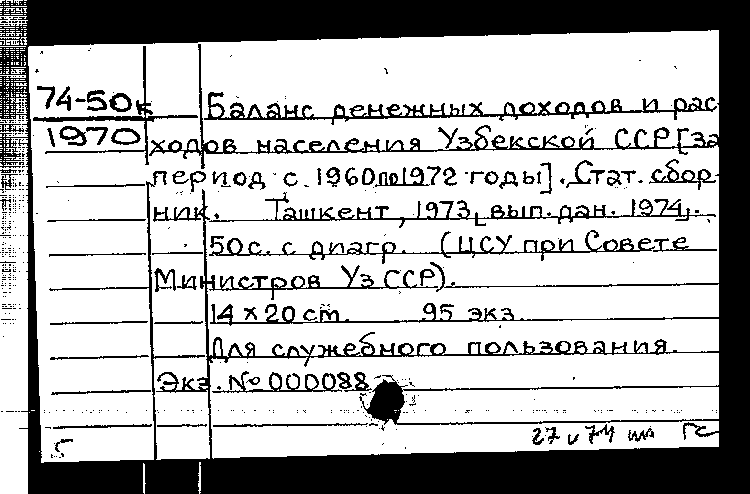 74-50к
1970
Баланс денежных доходов и рас-
ходов населения Узбекской ССР [за
период с 1960 по 1972 годы]. Стат. сбор-
ник. Ташкент, 1973, [вып. дан. 1974].
50 с. с диагр. (ЦСУ при Совете
Министров Уз ССР).
14 × 20 см. 95 экз.
Для служебного пользования.
Экз. № 000088
5
27 74